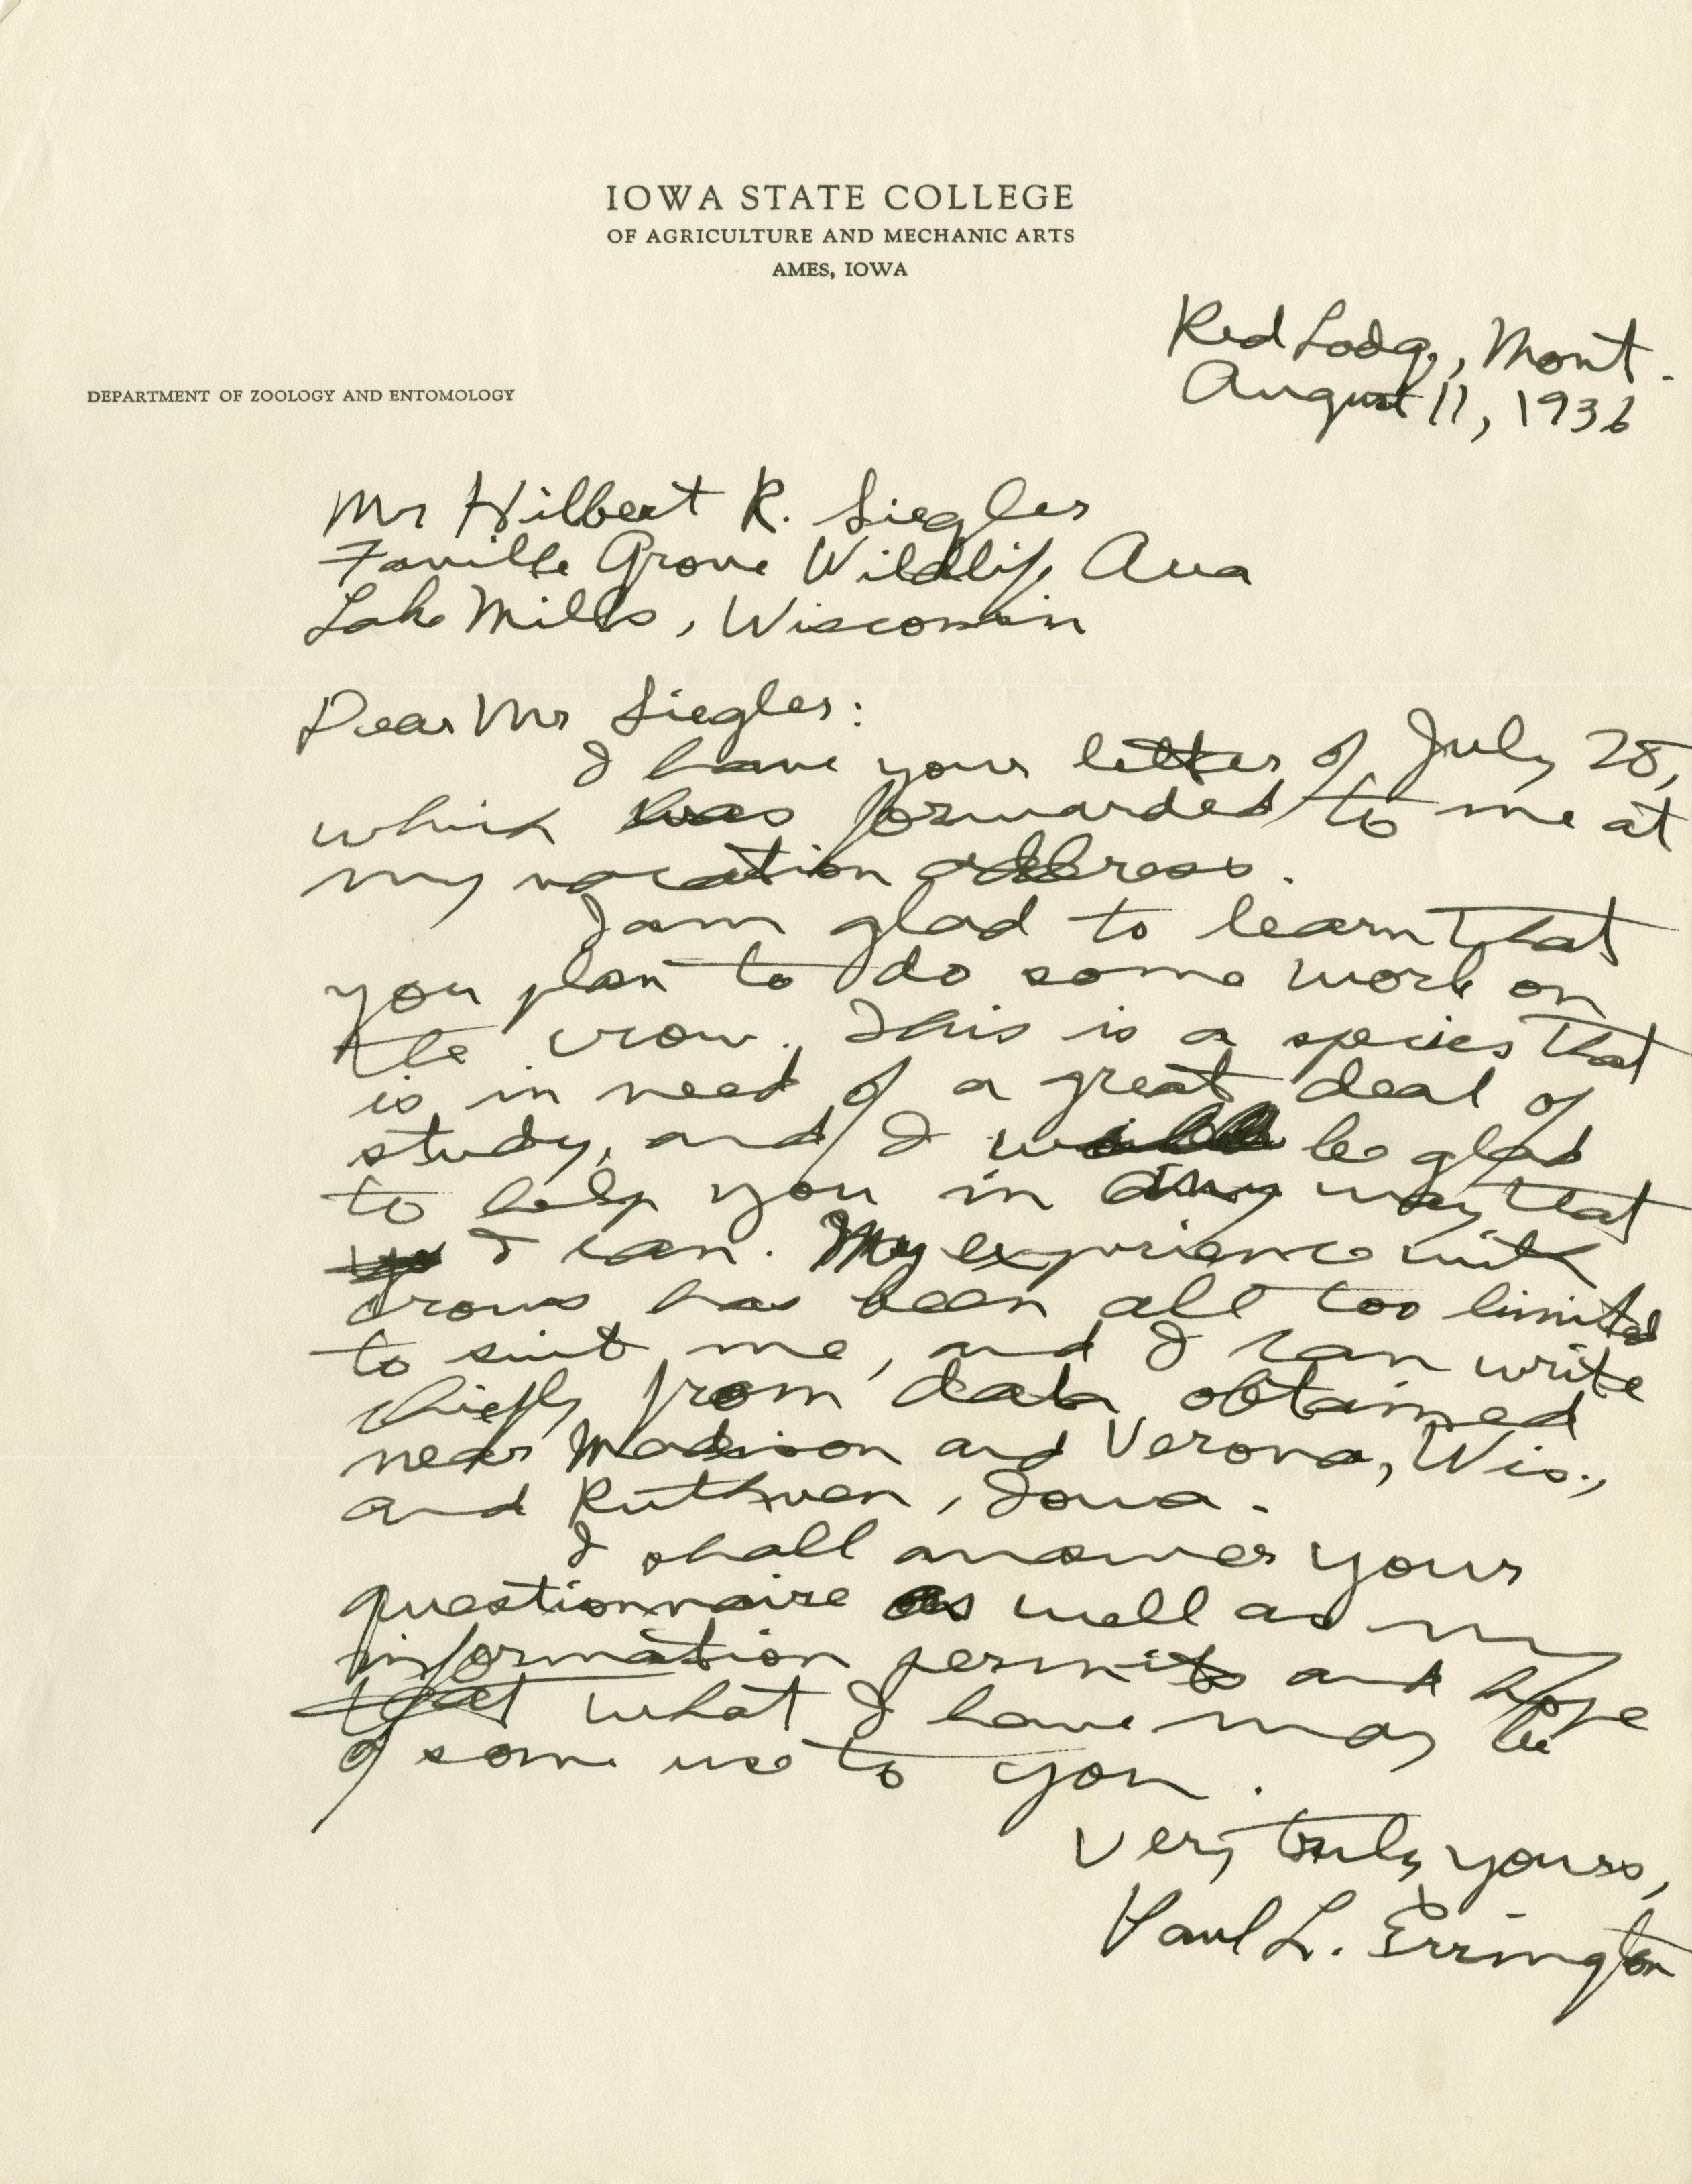 IOWA STATE COLLEGE
OF AGRICULTURE AND MECHANIC ARTS
AMES, IOWA
Red Lodge, Mont.
August 11, 1936
DEPARTMENT OF ZOOLOGY AND ENTOMOLOGY
Mr Hilbert R. Siegler
Faville Grove Wildlife Area
Lake Mills, Wisconsin
Dear Mr Siegler:
I have your letter of July 28,
which was forwarded to me at
my vacation address.
I am glad to learn that
you plan to do some work on
the crow. This is a species that
is in need of a great deal of
study, and I be glad
to help you in any way that
I can. My experience with
crows has been all too limited
to suit me, and I can write
chiefly from data obtained
near Madison and Verona, Wis.,
and Ruthven, Iowa.
I shall answer your
questionnaire as well as my
information permits and hope
that what I have may be
of some use to you.
Very truly yours,
Paul L. Errington